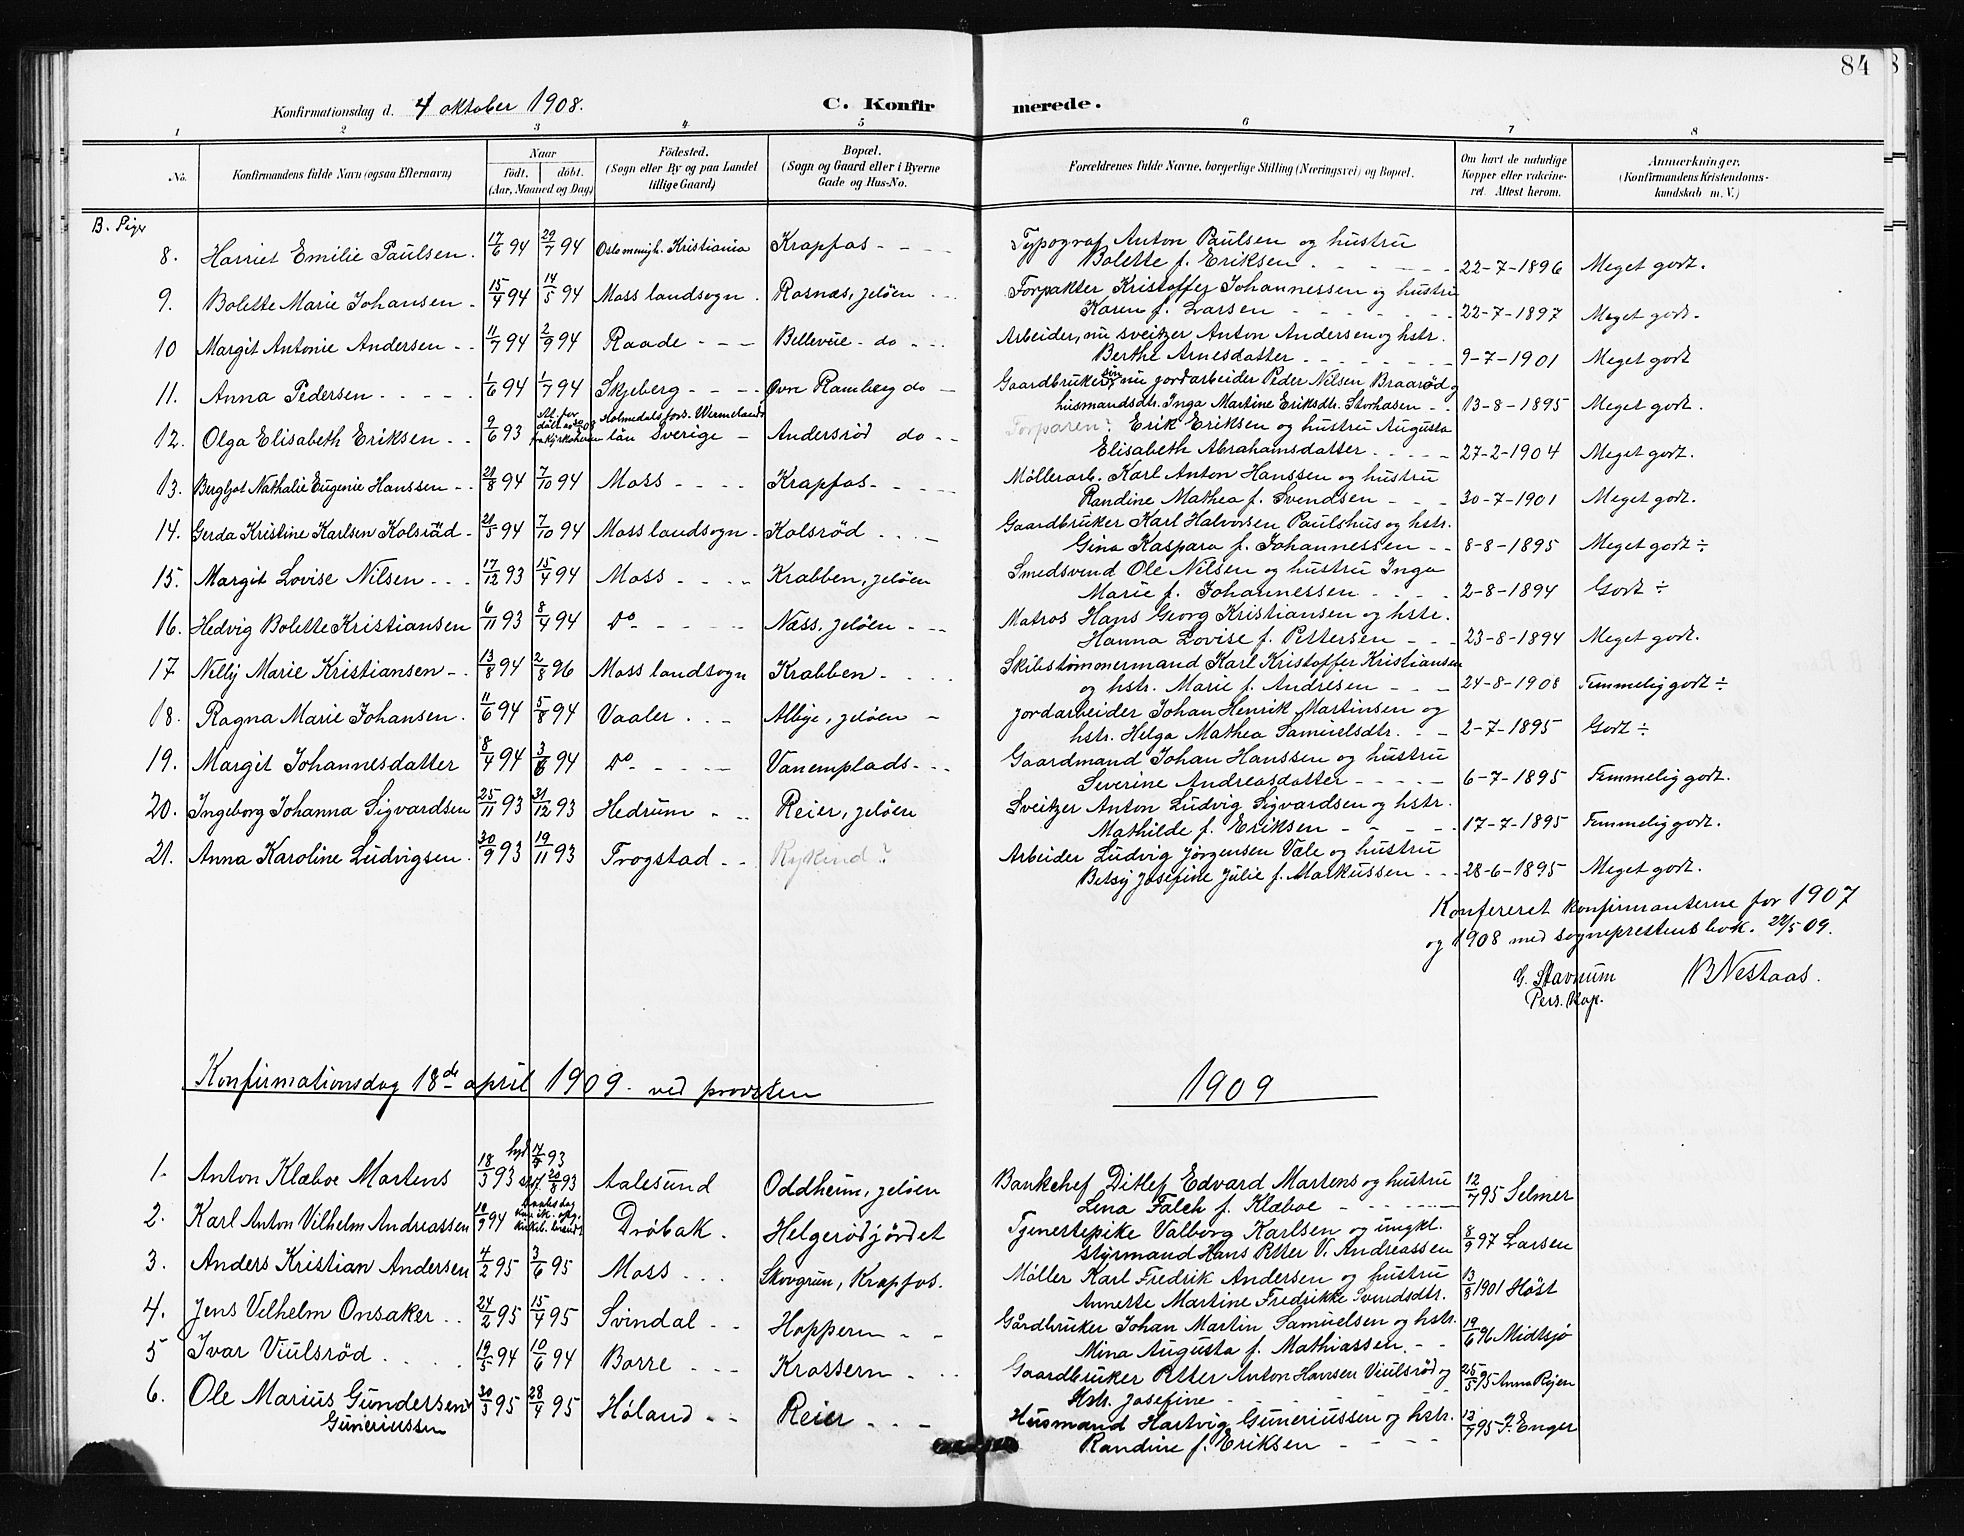 84
Konfirmationsdag d. 4 oktober 1908.
C. Konfirmerede.
1 2 3 4 5 6 7 8
No.
Konfirmandens fulde Navn (ogsaa Efternavn)
Naar født. døbt. (Aar, Maaned og Dag)
Fødested. (Sogn eller By og paa Landet tillige Gaard)
Bopæl. (Sogn og Gaard eller i Byerne Gade og Hus-No.
Forældrenes fulde Navne, borgerlige Stilling (Næringsvei) og Bopæl.
Om havt de naturlige Kopper eller vaccineret. Attest herom.
Anmerkninger. (Konfirmandens Kristendomskundskab m. V.)
B. Piger
8. Harriet Emilie Paulsen. 17/6 94 29/7 94 Oslo menigh. Kristiania Krapfos - Typograf Anton Paulsen og hustru
Bolette f. Eriksen. 22-7-1896 Meget godt.
9. Bolette Marie Johansen. 15/4 94 14/5 94 Moss landsogn. Rosnæs, jeløen Forpakter Kristoffer Johannessen og hustru
Karen f. Larsen 22-7-1897 Meget godt.
10 Margit Antonie Andersen 11/7 94 2/9 94 Raade Bellevue do Arbeider, nu sveitzer Anton Andersen og hstr.
Berthe Arnesdatter 9-7-1901 Meget godt
11. Anna Pedersen 1/6 94 1/7 94 Skjeberg Øvre Ramberg do Gaardbrukersøn nu jordarbeider Peder Nilsen Braarød og
husmandsdtr. Inga Martine Eriksdtr. Storhasen 13-8-1895 Meget godt.
12. Olga Elisabeth Eriksen 9/6 93 Holmedals fors. Wermelands län Sverige Andersrød do Forparen? Erik Eriksen og hustru Augusta
Elisabeth Abrahamsdatter 27-2-1904 Meget godt.
13. Bergljot Nathalie Eugenie Hanssen 28/8 94 7/10 94 Moss Krapfos Møllerarb. Karl Anton Hanssen og hustru
Randine Mathea f. Svendsen 30-7-1901 Meget godt.
14. Gerda Kristine Karlsen Kolsrød 21/5 94 7/10 94 Moss landsogn Kolsrød Gaardbruker Karl Halvorsen Paulshus og hstr.
Gina Kaspara f. Johannessen 8-8-1895 Meget godt ÷
15. Margit Lovise Nilsen 17/12 93 15/4 94 Moss Krabben, jeløen Smedsvend Ole Nilsen og hustru Inga
Marie f. Johannessen 2-8-1894 Godt ÷
16. Hedvig Bolette Kristiansen 6/11 93 8/4 94 Do Næss, jeløen Matros Hans Georg Kristiansen og hstr.
Hanna Lovise f. Pettersen 23-8-1894 Meget godt.
17 Nelly Marie Kristiansen 13/8 94 2/8 96 Moss landsogn Krabben Skibstømmermand Karl Kristoffer Kristiansen
og hstr. Marie f. Andresen 24-8-1908 Temmelig godt ÷
18. Ragna Marie Johansen. 11/6 94 5/8 94 Vaaler Alby, jeløen Jordarbeider Johan Henrik Martinsen og
hstr. Helga Mathea Samuelsdtr. 2-7-1895 Godt ÷
19. Margit Johannesdatter 8/4 94 3/6 94 Do Vanemplads Gaardmand Johan Hanssen og hustru
Severine Andreasdatter 6-7-1895 Temmelig godt.
20. Ingeborg Johanna Sigvardsen 25/11 93 31/12 93 Hedrum Reier, jeløen Sveitzer Anton Ludvig Sigvardsen og hstr.
Mathilde f. Eriksen 17-7-1895 Temmelig godt.
21. Anna Karoline Ludvigsen. 30/9 93 19/11 93 Trogstad Rykind? Arbeider Ludvig Jørgensen Væle og hustru
Betsy Josefine Julie f. Markussen 28-6-1895 Meget godt.
Konfereret konfirmanterne for 1907
og 1908 med sogneprestens bok. 22/5 09.
G. Stavrum B Nestaas.
Pers. Kap.
Konfirmationsdag 18de april 1909. ved provsten
1909
1. Anton Klæboe Martens 18/3 93 Aalesund Oddheim, jeløen Bankchef Ditlef Edvard Martens og hustru
Lena Falch f. Klæboe 12/7 95 Selmer
2. Karl Anton Vilhelm Andreassen 10/9 94 Drøbak. Helgerødjordet Tjenestepike Valborg Karlsen og ungkl.
styrmand Hans Petter V. Andreassen 8/9 97 Larsen
3. Anders Kristian Andersen 4/2 95 3/6 95 Moss Skovgrun, Krapfos. Møller Karl Fredrik Andersen og hustru
Annette Martine Fredrikke Svendsdtr. 13/8 1901 Høst
4. Jens Vilhelm Onsaker 24/2 95 15/4 95 Svindal Hoppern Gårdbruker Johan Martin Samuelsen og hstr.
Mina Augusta f. Mathiassen. 19/6 96 Midtsjø
5 Ivar Viulsrød 19/5 94 10/6 94 Borre Krossern Gaardbruker Petter Anton Hansen Viulsrød og
Hstr. Josefine 25/5 95 Anna Røjen
6. Ole Marius Gundersen 30/3 95 28/4 95 Høland Reier Husmand Hartvig Guneriussen og hstr.
Guneriussen Randine f. Eriksen 13/7 95 F. Enger